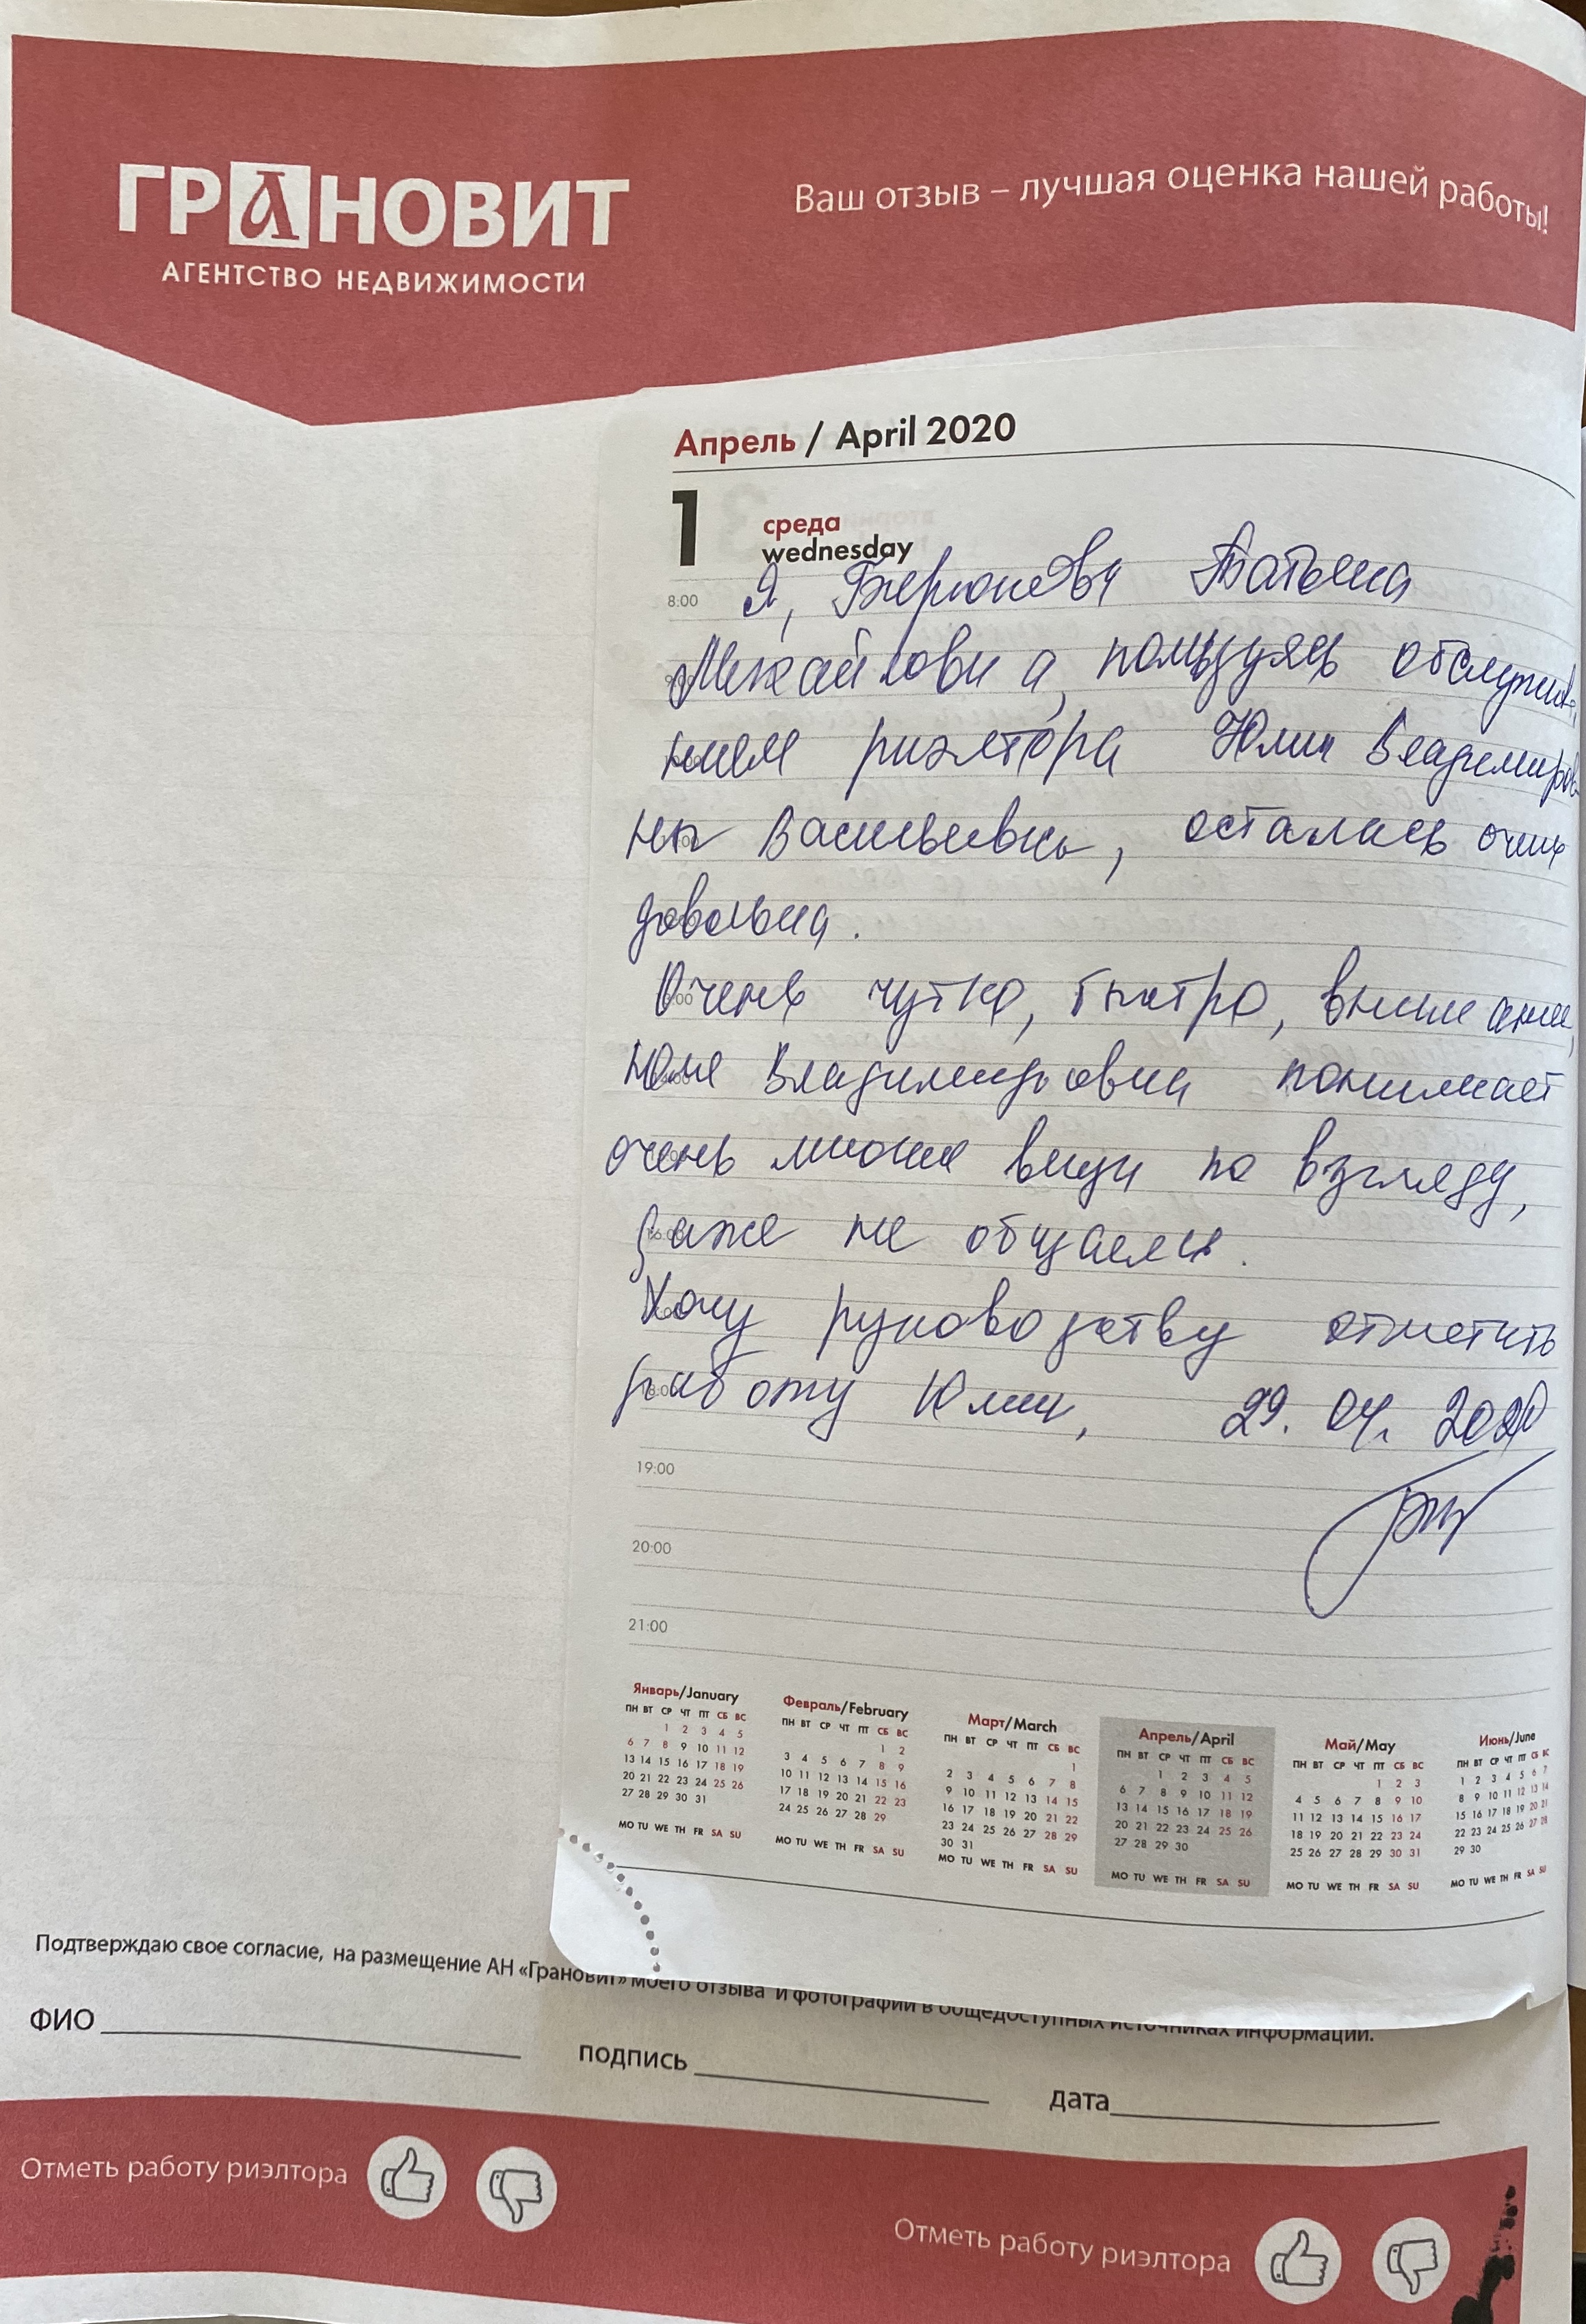 ГРАНОВИТ
АГЕНТСТВО НЕДВИЖИМОСТИ
Ваш отзыв – лучшая оценка нашей работы!
Апрель / April 2020
1
среда
wednesday
8:00
Я, Бирюкова Татьяна
Михайловна, пользуясь обслужива
нием риэлтора Юлии Владимиров
ны Васильевны, осталась очень
довольна.
Очень чутко, быстро,
Юлия Владимировна понимает
очень многие вещи по взгляду,
даже не общаясь.
Хочу руководству отметить
работу Юлии, 29.04.2020
19:00
20:00
21:00
Январь/January Февраль/February Март/March Апрель/April Май/May Июнь/June
ПН ВТ СР ЧТ ПТ СБ ВС ПН ВТ СР ЧТ ПТ СБ ВС ПН ВТ СР ЧТ ПТ СБ ВС ПН ВТ СР ЧТ ПТ СБ ВС ПН ВТ СР ЧТ ПТ СБ ВС ПН ВТ СР ЧТ ПТ СБ ВС
1 2 3 4 5 1 2 1 1 2 3 4 5 1 2 3 1 2 3 4 5 6 7
6 7 8 9 10 11 12 3 4 5 6 7 8 9 2 3 4 5 6 7 8 6 7 8 9 10 11 12 4 5 6 7 8 9 10 8 9 10 11 12 13 14
13 14 15 16 17 18 19 10 11 12 13 14 15 16 9 10 11 12 13 14 15 13 14 15 16 17 18 19 11 12 13 14 15 16 17 15 16 17 18 19 20 21
20 21 22 23 24 25 26 17 18 19 20 21 22 23 16 17 18 19 20 21 22 20 21 22 23 24 25 26 18 19 20 21 22 23 24 22 23 24 25 26 27 28
27 28 29 30 31 24 25 26 27 28 29 23 24 25 26 27 28 29 27 28 29 30 25 26 27 28 29 30 31 29 30
30 31
MO TU WE TH FR SA SU MO TU WE TH FR SA SU MO TU WE TH FR SA SU MO TU WE TH FR SA SU MO TU WE TH FR SA SU MO TU WE TH FR SA SU
Подтверждаю свое согласие, на размещение АН «Грановит» моего отзыва и фотографии в общедоступных источниках информации.
ФИО подпись дата
Отметь работу риэлтора
Отметь работу риэлтора